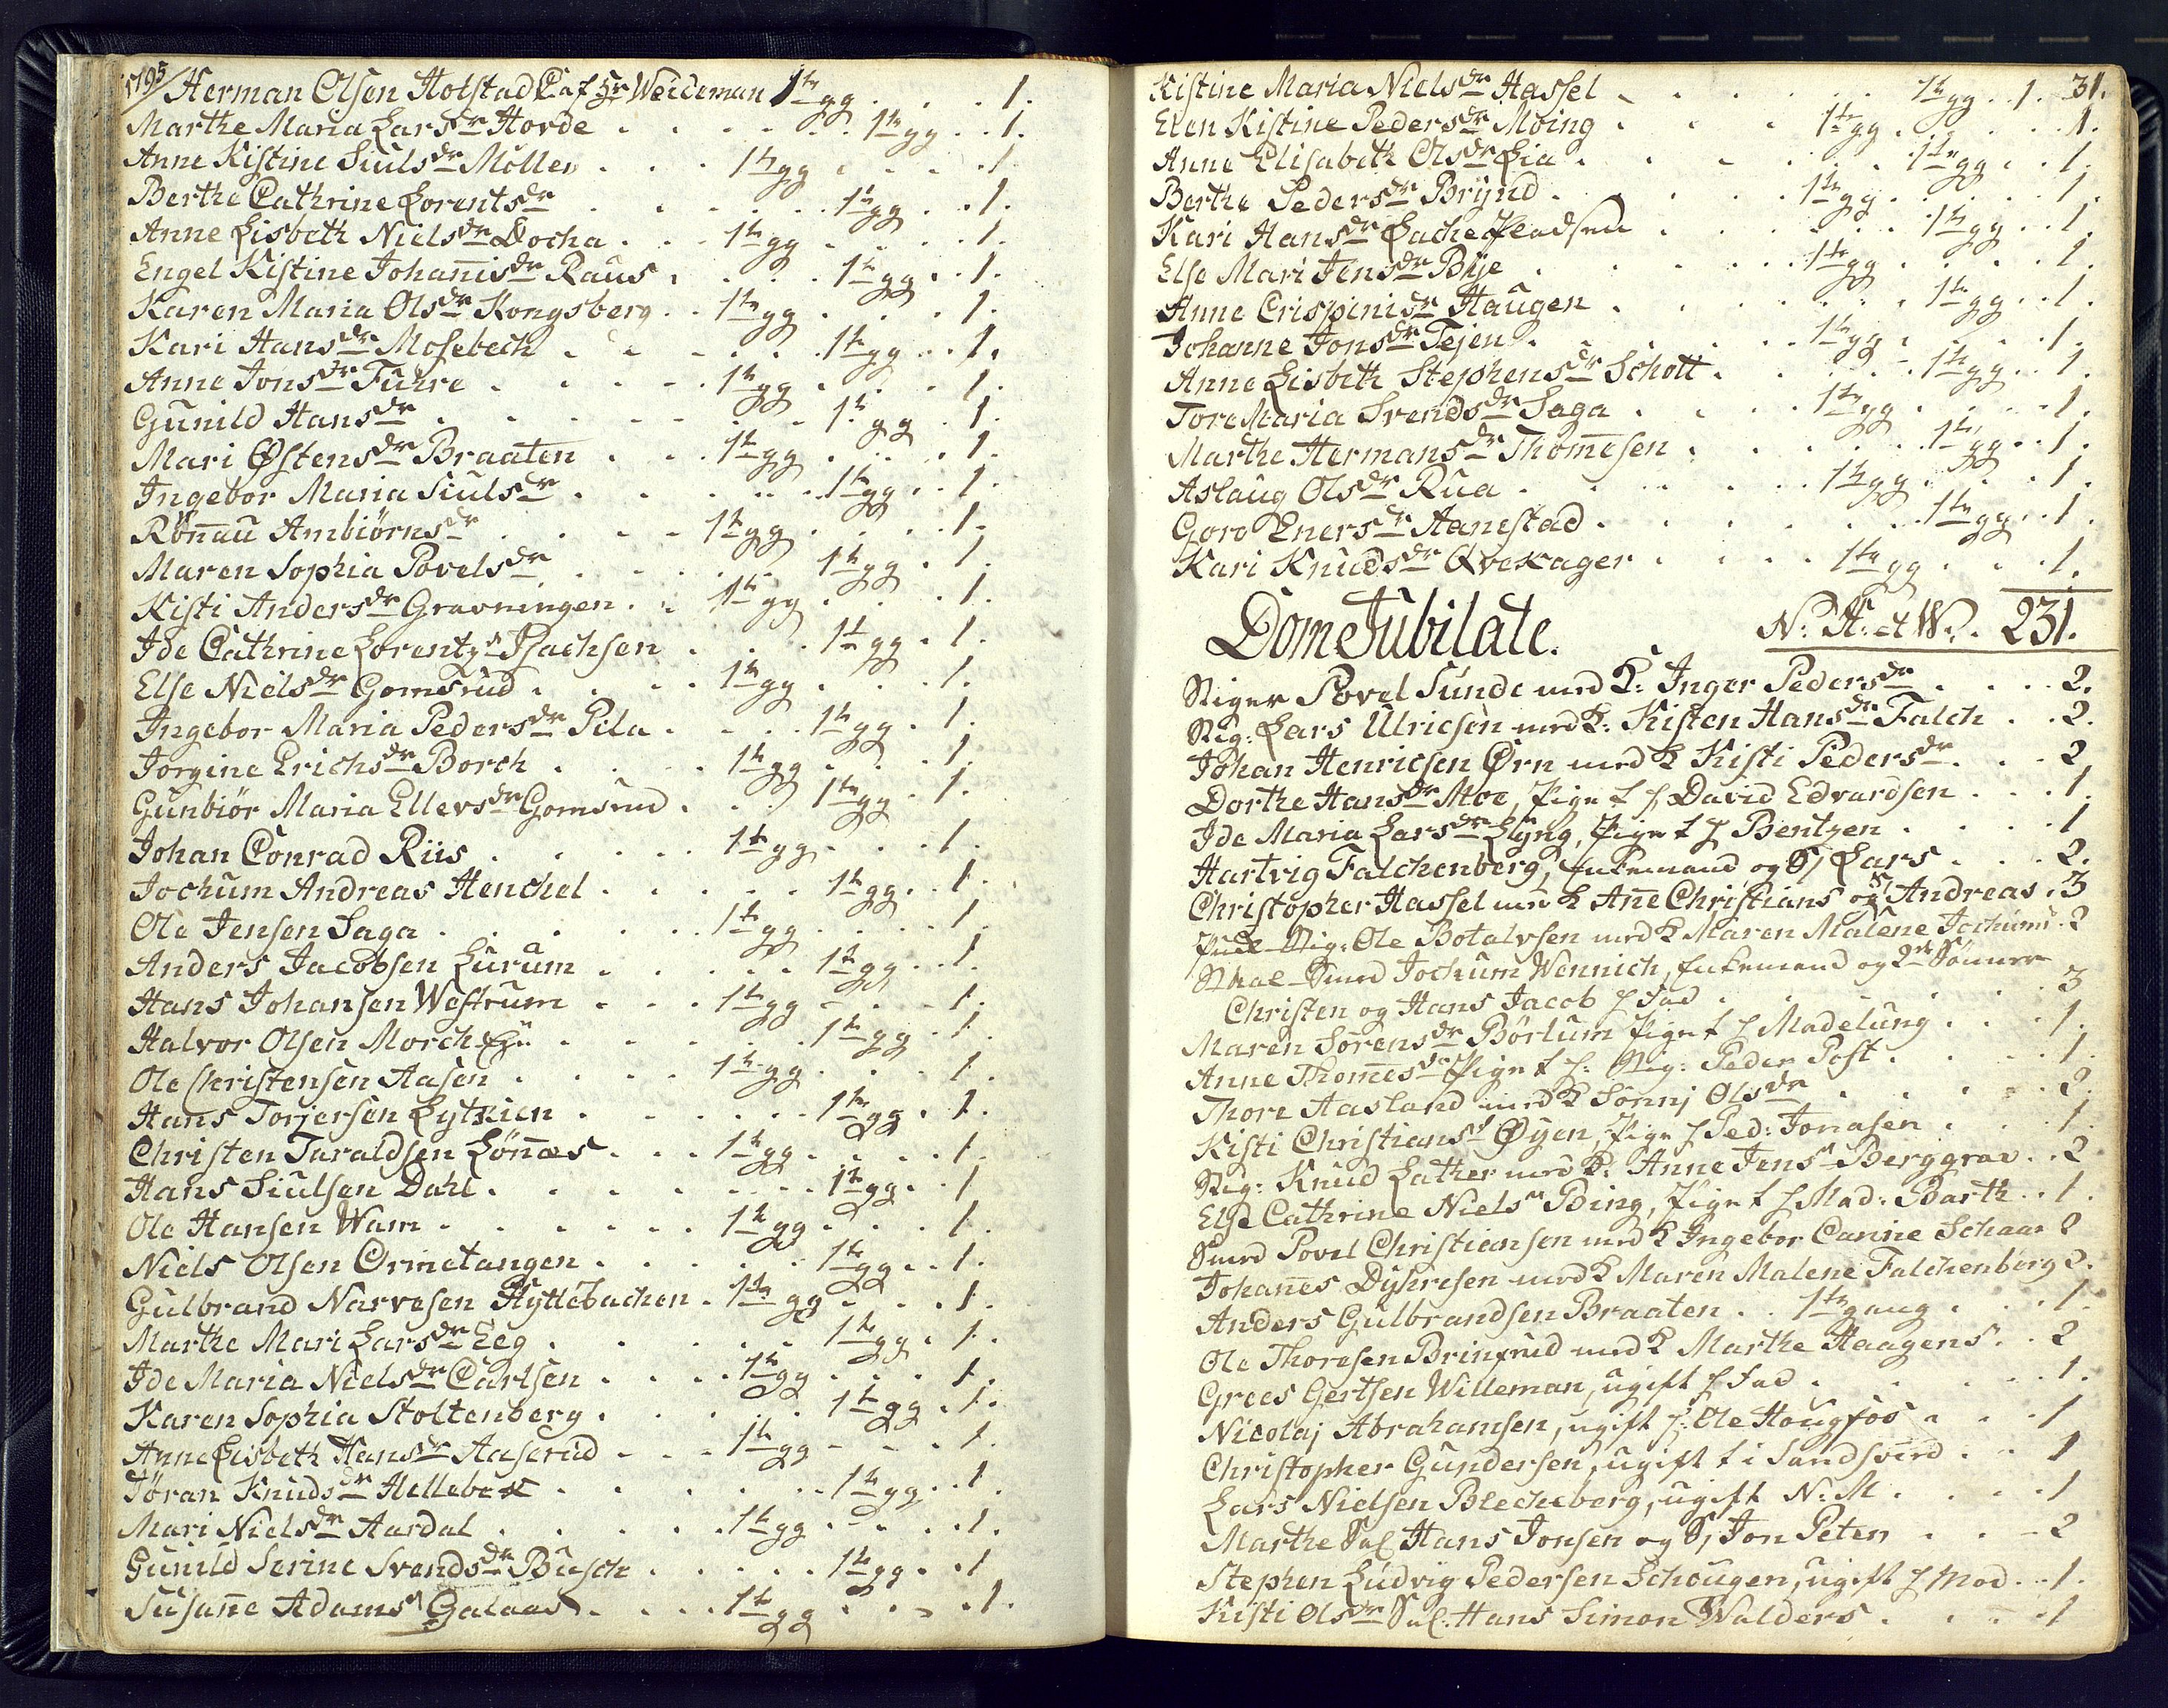 1795/
Herman Olsen Holstad C. af Hr Weideman 1te gg . . . 1.
Marthe Maria Larsdr Hovde . . . 1te gg . . 1.
Anne Kistine Siulsdr Møller . . . 1te gg . . . 1
Berthe Cathrine Lorentsdr . . . 1te gg . . 1.
Anne Lisbeth Nielsdr Docha . . . 1te gg . . . 1.
Engel Kistine Johannisdr Raus . . . 1te gg . . 1.
Karen Maria Olsdr Kongsberg . . 1te gg . . . 1.
Kari Hansdr Mosebech . . . 1te gg . . 1.
Anne Jonsdr Fuhre . . . 1te gg . . . 1.
Gunild Hansdr . . . 1te gg . 1.
Mari Østensdr Braaten . . . 1te gg . . . 1.
Ingebor Maria Siulsdr . . . 1te gg . . 1.
Rönnau Ambiörnsdr . . . 1te gg . . . 1.
Maren Sophia Povelsdr . . . 1te gg . 1.
Kisti Andersdr Gravningen . . 1te gg . . . 1.
Ide Cathrine Lorentzdr Isachsen . . . 1te gg . 1.
Else Nielsdr Gomsrud . . . 1te gg . . . 1.
Ingebor Maria Pedersdr Pila . . . 1te gg . 1.
Jorgine Erichsdr Borch . . . 1te gg . . . 1.
Gunbiör Maria Ellevsdr Gomsrud . . . 1te gg . 1.
Johan Conrad Riis . . . 1te gg . . . 1.
Jochum Andreas Henchel . . . 1te gg . . 1.
Ole Jensen Saga . . . 1te gg . . . 1.
Anders Jacobsen Luraum . . . 1te gg . . 1.
Hans Johansen Westrum . . . 1te gg . . . 1.
Halvor Olsen Morch . . . 1te gg . 1.
Ole Christensen Aasen . . . 1te gg . . . 1.
Hans Torjersen Lytskien . . . 1te gg . 1.
Christen Taraldsen Lönnæs . . . 1te gg . . . 1.
Hans Siulsen Dahl . . . 1te gg . . 1
Ole Hansen Wam . . . 1te gg . . . 1.
Niels Olsen Ormetangen . . . 1te gg . . 1.
Gulbrand Narvesen Hyttebachen . 1te gg . . . 1.
Marthe Mari Larsdr Eeg . . . 1te gg . 1.
Ide Maria Nielsdr Carlsen . . . 1te gg . . . 1.
Karen Sophia Stoltenberg . . . 1te gg . 1.
Anne Lisbeth Hansdr Aaserud . . . 1te gg . . . 1.
Jöran Knudsdr Hellebek . . . 1te gg . . 1.
Mari Nielsdr Aardal . . . 1te gg . . . 1.
Gunild Serine Svendsdr Busch . . . 1te gg . . 1
Susanne Adams Galaas . . . 1te gg . . . 1.
Kistine Maria Nielsdr Hassel . . . 1te gg . . 1. 31.
Elen Kistine Pedersdr Moing . . . 1te gg . . . 1.
Anne Elisabeth Olsdr Lia . . . 1te gg . . 1.
Berthe Pedersdr Brynd . . . 1te gg . . . 1.
Kari Hansdr Lachepladsen . . . 1te gg . . 1.
Else Mari Jensdr Bye . . . 1te gg . . . 1.
Anne Crispinisdr Haugen . . . 1te gg . . 1.
Johanne Jonsdr Tejen . . . 1te gg . . . 1.
Anne Lisbeth Stephensdr Schott . . . 1te gg . . 1.
Tore Maria Svendsdr Saga . . . 1te gg . . . 1.
Marthe Hermansdr Thomesen . . . 1te gg . . 1.
Aslaug Olsdr Rua . . . 1te gg . . . 1.
Goro Enersdr Aanestad . . . 1te gg . . 1.
Kari Knudsdr Qvekager . . . 1te gg . . . 1.
Dom Jubilate. N: H: et W: . 231.
Stiger Povel Sunde med K: Inger Pedersdr . . . 2.
Stig: Lars Ulricsen med K: Kisten Hansdr Falch . . 2.
Johan Henricsen Ørn med K Kisti Pedersdr . . . 2
Dorthe Hansdr Moe, Pige t f David Edvardsen . . . 1.
Ide Maria Larsdr Lyng, Pige t f Bentzen . . . 1
Hartvig Falchenberg, Enkemand og S, Lars . . . 2.
Christopher Hassel med K Anne Christians og S, Andreas . 3
Stig: Ole Botolvsen med K Maren Malene Jochums . 2
Smed Jochum Wennich, Enkemand og 2de Sønner
Christen og Hans Jacob f Fad . . . 3
Maren Sörensdr Börlum Pige t f Madelung . . . 1.
Anne Thomesdr Pige t f: Stig: Peder Post . . . 1.
Thore Aasland med K Sönnj Olsdr . . . 2.
Kisti Christiansdr Øyen, Pige f Ped: Jonasen . . . 1.
Stig: Knud Lather med K: Anne Jensdr Berggrav . . 2
Else Cathrine Nielsdr Bing, Pige t f Mad: Barth . . 1.
Smed Povel Christiansen med K Ingebor Canine Schaar 2
Johannes Dyhresen med K Maren Malene Falchenberg 2.
Anders Gulbrandsen Braaten . . 1te gang . . . 1.
Ole Thoresen Brinfrud med K Marthe Haagens . . 2
Grees Gertsen Willeman, ugift f Fad . . . 1.
Nicolaj Abrahamsen, ugift f: Ole Hougfos . . . 1
Christopher Gundersen, ugift t i Sandsverd . . 1
Lars Nielsen Blecheberg, ugift N: M . . . 1
Marthe Sal Hans Jonsen og S, Jon Peter . . . 2
Stephen Ludvig Pedersen Schougen, ugift f Mod . . 1.
Kisti Olsdr Sal: Hans Simon Walders . . . 1